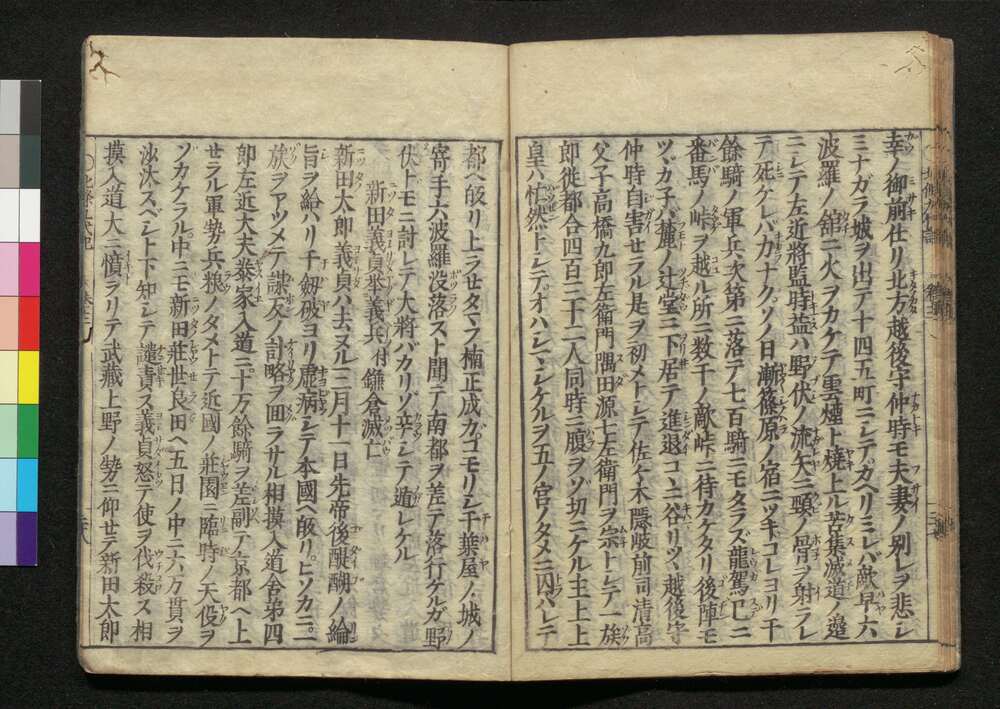 幸ノ御前仕リ北方越後守仲時モ夫妻ノ別レヲ悲シ
ミナガラ城ヲ出テ十四五町ニシテカヘリミレバ敵早六
波羅ノ舘ニ火ヲカケテ雲煙ト焼上ル苦集滅道ノ邉
ニシテ左近將監時益ハ野伏ノ流矢ニ頸ノ骨ヲ射ラレ
テ死ケレバカナクソノ日漸篠原ノ宿ニツキコレヨリ千
餘騎ノ軍兵次第ニ落テ七百騎ニモタラズ龍駕已ニ
番馬ノ峠ヲ越ル所ニ数千ノ敵峠ニ待カケタリ後陣モ
ツヾカ子バ麓ノ辻堂ニ下居テ進退コヽニ谷リツヽ越後守
仲時自害セラル是ヲ初メトシテ佐々木隠岐前司清高
父子高橋九郎左衛門隅田源七左衛門ヲ宗トシテ一族
郎従都合四百三十二人同時ニ腹ヲゾ切ニケル主上上
皇ハ忙然トシテオハシマシケルヲ五ノ宮ノタメニ囚ハレテ
都ヘ皈リ上ラセタマフ楠正成ガコモリシ千葉屋ノ城ノ
寄手六波羅没落スト聞テ南都ヲ差テ落行ケルガ野
伏トモニ討レテ大將バカリゾ辛シテ遁レケル
新田義貞举義兵付鎌倉滅亡
新田太郎義貞ハ去ヌル三月十一日先帝後醍醐ノ綸
旨ヲ給ハリ千劔破ヨリ虚病シテ本國ヘ皈リヒソカニ一
族ヲアツメテ謀反ノ計略ヲ囬ラサル相摸入道舎弟四
郎左近大夫泰家入道ニ十万餘騎ヲ差副テ京都ヘ上
セラル軍勢兵粮ノタメトテ近國ノ莊園ニ臨時ノ天役ヲ
ソカケラル中ニモ新田莊世良田ヘ五日ノ中ニ六万貫ヲ
沙汰スベシト下知シテ譴責ス義貞怒テ使ヲ伐殺ス相
摸入道大ニ憤ラリテ武藏上野ノ勢ニ仰セテ新田太郎